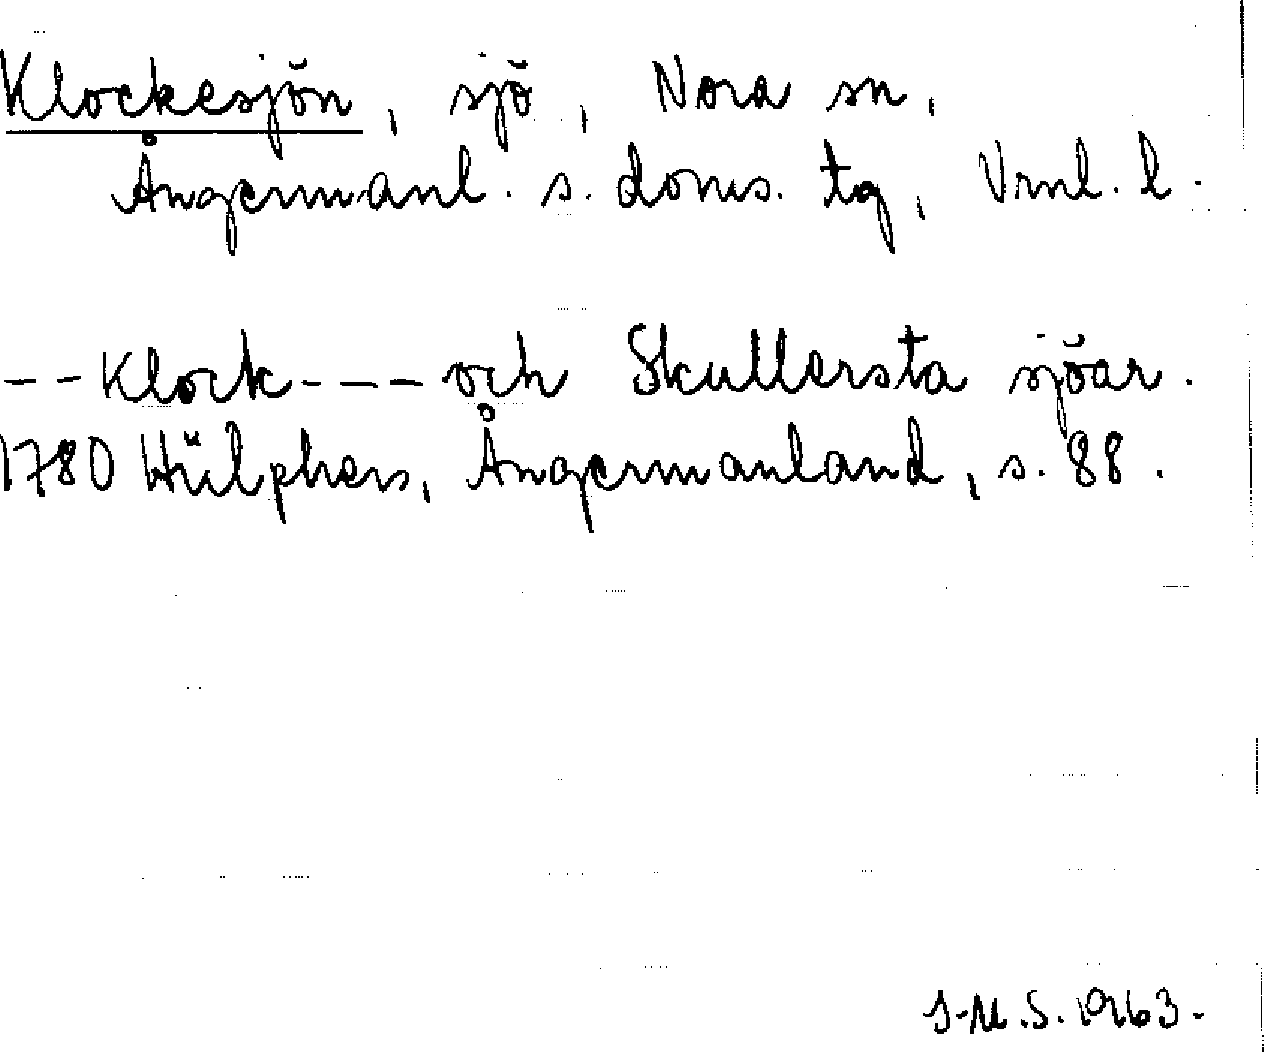 Klockesjön, sjö, Nora sn,
Ångermanl. s. doms. tg, Vrnl. l.
--Klock---- och Skullersta sjöar.
1780 Hülphers, Ångermanland, s. 88.
J-M.S. 1963.